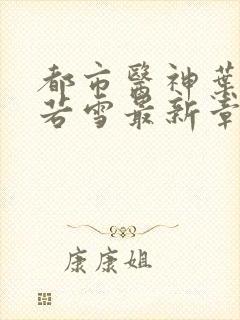 都市醫神葉
若雪最新章
康康姐